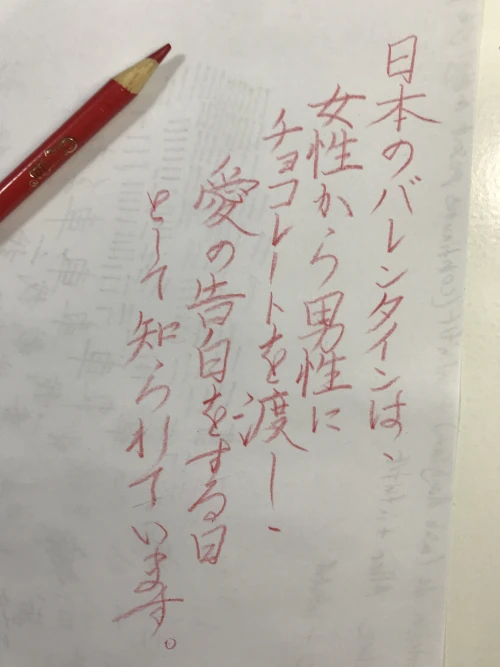 日本のバレンタインは、
女性から男性に
チョコレートを渡し、
愛の告白をする日
として知られています。